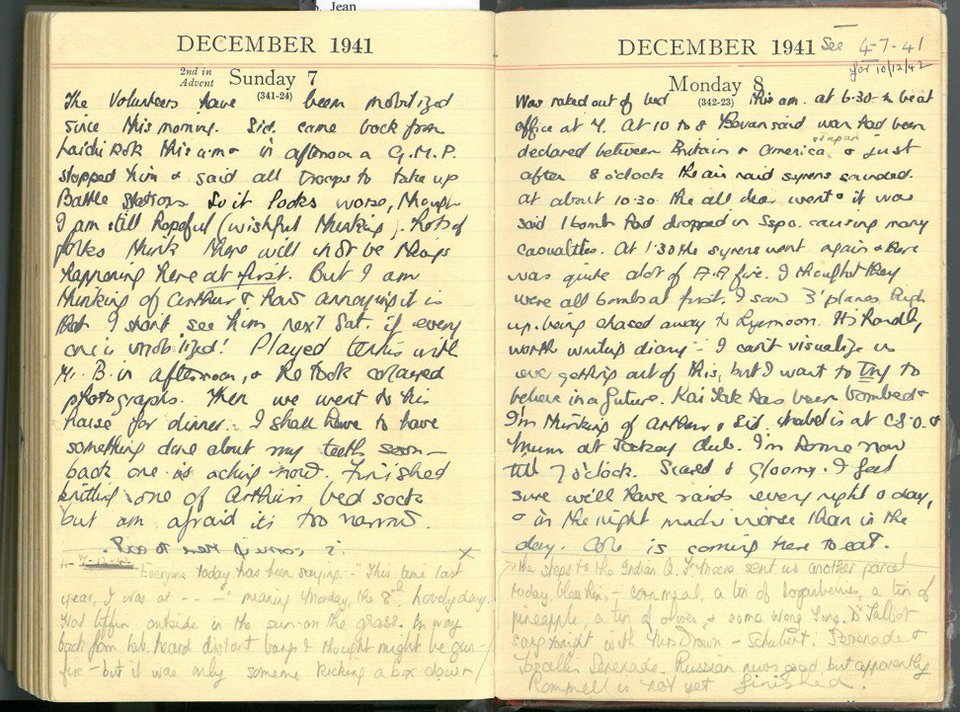 Jean
DECEMBER 1941
2nd in
Advent
Sunday 7
(341-24)
The Volunteers have been mobilized
since this morning. Sid. came back from
Laichi Kok this a.m. & in afternoon a G.M.P.
stopped him & said all troops to take up
Battle Stations. So it looks worse, though
I am still hopeful (wishful thinking). Lots of
folks think there will not be things
happening here at first. But I am
thinking of Arthur & how annoying it is
that I shan't see him next Sat. if every
one is mobilized! Played tennis with
Mr. B. in afternoon, & he took coloured
photographs. Then we went to his
house for dinner. I shall have to have
something done about my teeth soon –
back one is aching now. Finished
knitting one of Arthur's bed socks
but am afraid it's too narrow.
Everyone today has been saying – "This time last
year, I was at – – –" meaning Monday, the 8th. Lovely day.
Had tiffin outside in the sun – on the grass. On way
back from hub, heard distant bangs I thought might be gun-
fire – but it was only someone kicking a box down
DECEMBER 1941
See 4-7-41
for 10/12/42
Monday 8
(342-23)
Was raked out of bed this am. at 6.30 to be at
office at 7. At 10 to 8 Bevan said war had been
declared between Britain & America, & Japan & just
after 8 o'clock the air raid syrens sounded.
At about 10.30 the all clear went & it was
said 1 bomb had dropped in Sspo. causing many
casualties. At 1.30 the syrens went again & there
was quite alot of A.A fire. I thought they
were all bombs at first. I saw 3 planes high
up being chased away to Lyemoon. It's hardly
worth writing diary – I can't visualize us
ever getting out of this, but I want to try to
believe in a future. Kai Tak has been bombed &
I'm thinking of Arthur & Sid. Mabel is at C.S.O. &
Mum at Jockey Club. I'm home now
till 7 o'clock. Scared & gloomy. I feel
sure we'll have raids every night & day,
& in the night much worse than in the
day. is coming here to eat.
the steps to the Indian Q. F. Moore sent us another parcel
today bless him – cornmeal, a tin of loganberries, a tin of
pineapple, a tin of olives & some Wong Tong. D. Talbot
sang tonight with – Schubert's Serenade &
Toselli's Serenade. Russian news good but apparently
Rommell is not yet finished.